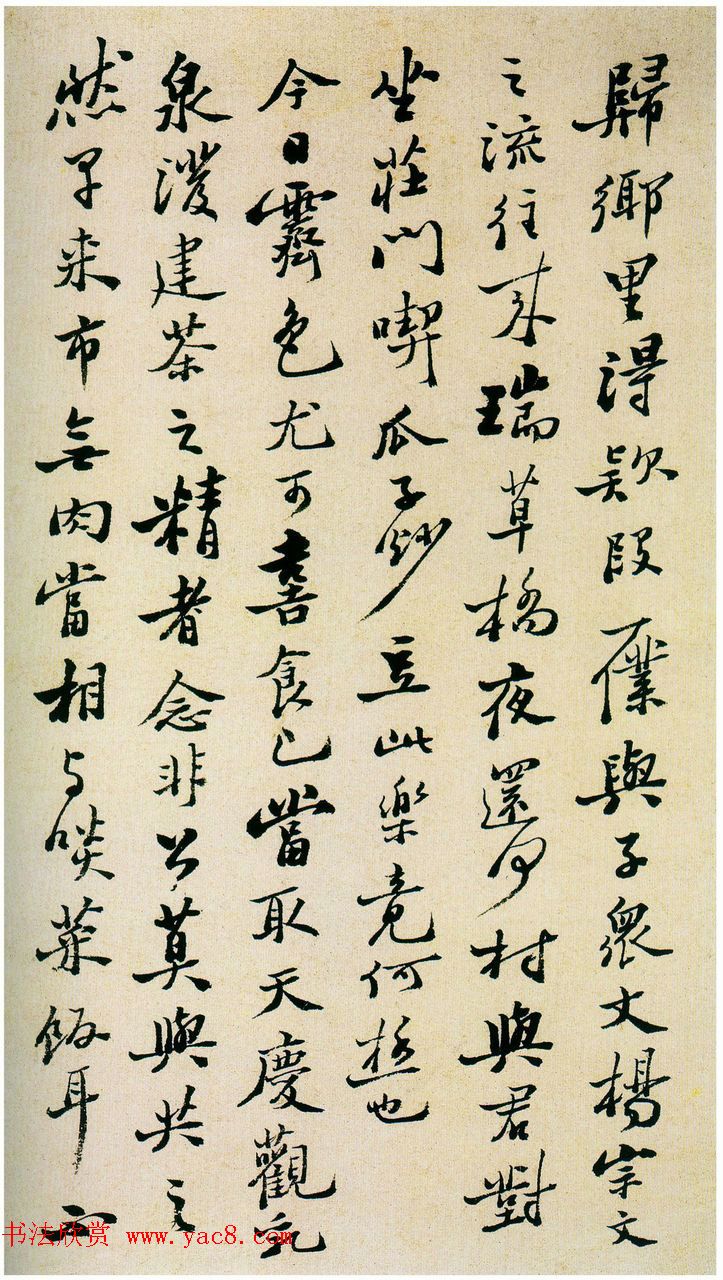 歸鄉里得款段一僕與子衆丈楊宗文
之流往来瑞草橋夜還何村與君對
坐莊門喫瓜子炒豆此樂竟何極也
今日霽色尤可喜食已當取天慶觀乳
泉潑建茶之精者念非公莫與共之
然早来市無肉當相与啖菜飯耳不
书法欣赏 www.yac8.com